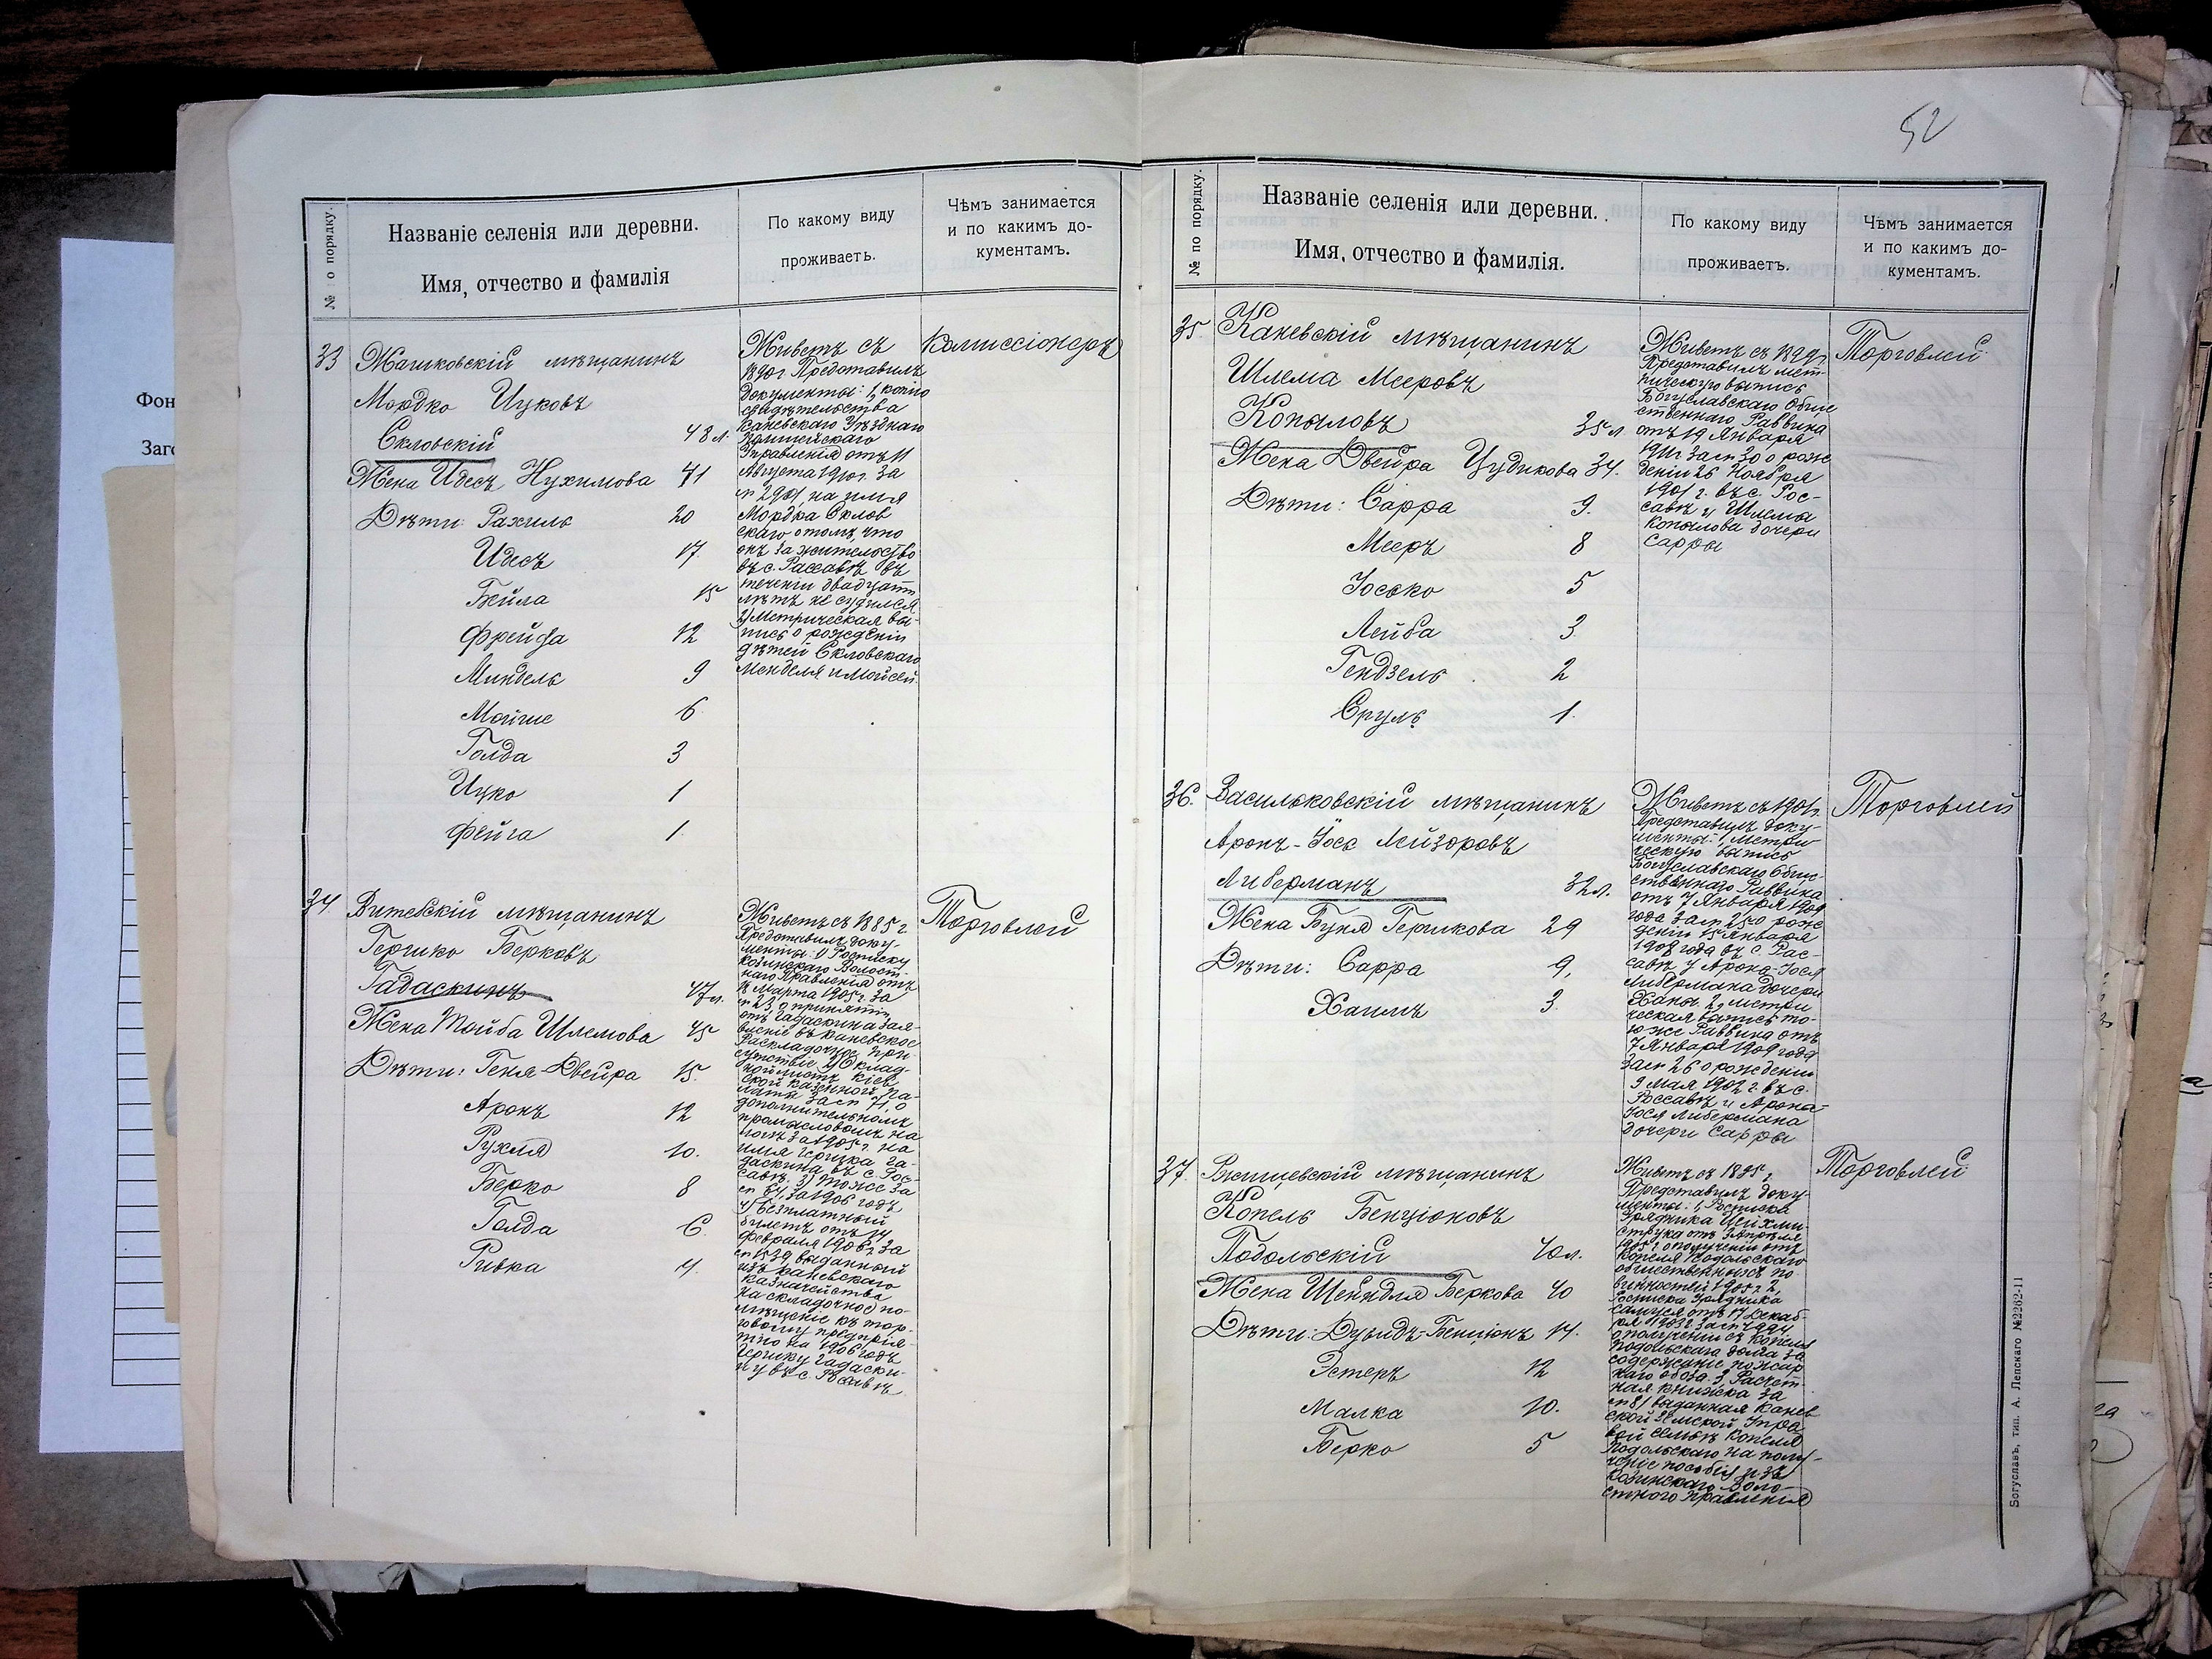 52
Фон
Заго
№ по порядку.
Названіе селенія или деревни.
Имя, отчество и фамилія
По какому виду
проживаетъ.
Чѣмъ занимается
и по какимъ до-
кументамъ.
33
Жашковскій мѣщанинъ
Мордко Ицковъ
Скловскій 48 л.
Жена Идесъ Нухимова 41
Дѣти: Рахиль 20
Идесъ 17
Бейла 15
Фрейда 12
Миндель 9
Мойше 6
Голда 3
Ицко 1
Фейга 1
Живетъ съ
1890 г Представилъ
документы: 1, копію
свидѣтельства
Каневскаго Уѣзднаго
Полицейскаго
Управленія отъ 11
Августа 1910 г. за
№ 2901 на имя
Мордка Склов
скаго о томъ, что
онъ за жительство
въ с. Рассавѣ въ
теченіи двадцати
лѣтъ не судился
2) Метрическая вы-
пись о рожденіи
дѣтей Скловскаго
Менделя и Мойсей.
Комиссіонеръ
34.
Витебскій мѣщанинъ
Гершко Берковъ
Гадаскинъ 47 л.
Жена Тойба Шлемова 45
Дѣти: Геня-Двейра 15.
Аронъ 12
Рухля 10.
Берко 8
Голда 6
Ривка 4.
Живетъ съ 1885 г
Представилъ доку-
менты: 1) Росписку
Козинскаго Волост-
наго Правленія отъ
Марта 1905 г. за
№ 23, о принятіи
отъ Гадаскина зая-
вленіе въ Каневское
Раскладочное при-
сутствіе 2) Оклад-
ной листъ Кіев
ской Казенной Па-
латы за № 71, о
дополнительномъ
промысловомъ на
логѣ за 1905 г. на
имя Гершка Га-
даскина въ с. Рос-
савѣ. 3) Тоже за
№ 64 за 1906 годъ
4) Безплатный
билетъ отъ 14
февраля 1906 г за
№ 1539 выданный
изъ Каневскаго
Казначейства
на складочное по-
мѣщеніе къ тор-
говому предпрія-
тію на 1906 годъ
Гершку Гадаски-
ну въ с. Рсавѣ
Торговлей
№ по порядку.
Названіе селенія или деревни.
Имя, отчество и фамилія.
По какому виду
проживаетъ.
Чѣмъ занимается
и по какимъ до-
кументамъ.
35.
Каневскій мѣщанинъ
Шлема Мееровъ
Копыловъ 35 л
Жена Двейра Цудикова 34.
Дѣти: Сарра 9.
Мееръ 8
Іосько 5
Лейба 3
Гендзель 2
Сруль 1.
Живетъ съ 1899 г
Представилъ мет-
рическую выпись
Богуславскаго Обще
ственнаго Раввина
отъ 19 Января
1911 г за № 30 о рож
деніи 26 Ноября
1901 г. въ с. Рос-
савѣ у Шлемы
Копылова дочери
Сарры
Торговлей
36.
Васильковскій мѣщанинъ
Аронъ-Іось Лейзоровъ
Либерманъ 32 л.
Жена Буня Гершкова 29
Дѣти: Сарра 9,
Хаимъ 3.
Живетъ съ 1901 г.
Представилъ доку-
менты: 1, Метри
ческую выпись
Богуславскаго Обще-
ственнаго Раввина
отъ 7 Января 1909
года за № 25 о рож
деніи 15 Января
1908 года въ с. Рас-
савѣ у Арона-Іося
Либермана дочери
Ханы 2, метри
ческая выпись то-
го же Раввина отъ
7 Января 1909 года
за № 26 о рожденіи
9 мая 1902 г. въ с.
Россавѣ у Арона-
Іося Либермана
дочери Сарры
Торговлей
37.
Ржищевскій мѣщанинъ
Копель Бенціоновъ
Подольскій 40 л.
Жена Шейндля Беркова 40
Дѣти: Дувидъ-Бенціонъ 14.
Эстеръ 12
Малка 10.
Берко 5
Живетъ съ 1895 г.
Представилъ доку-
менты: 1, Росписка
Урядника
отъ 3 Апрѣля
1905 г. о полученіи отъ
Копеля Подольскаго
общественныхъ по-
винностей 1905 г. 2,
Росписка Урядника
отъ 17 Декаб-
ря
о полученіи съ Копеля
Подольскаго долга за
содержаніе пожар
наго обоза. 3, Расчет-
ная книжка за
№ 81 выданная Канев
ской Земской Упра
вой семьѣ Копеля
Подольскаго на полу-
ченіе пособія изъ
Козинскаго Воло-
стного Правленія
Торговлей
Богуславъ, тип. А. Ленскаго №2262-11